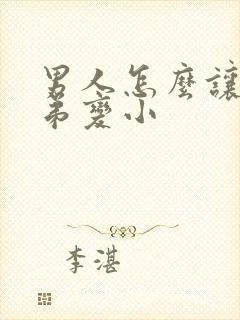 男人怎麼讓
弟變小
李湛